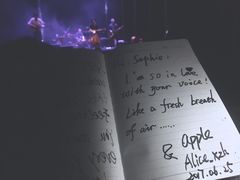 Sophie:
I'm so in Love
with your voice!
Like a fresh breath
of air ......
& Apple
Alice_kzh
2017.06.25